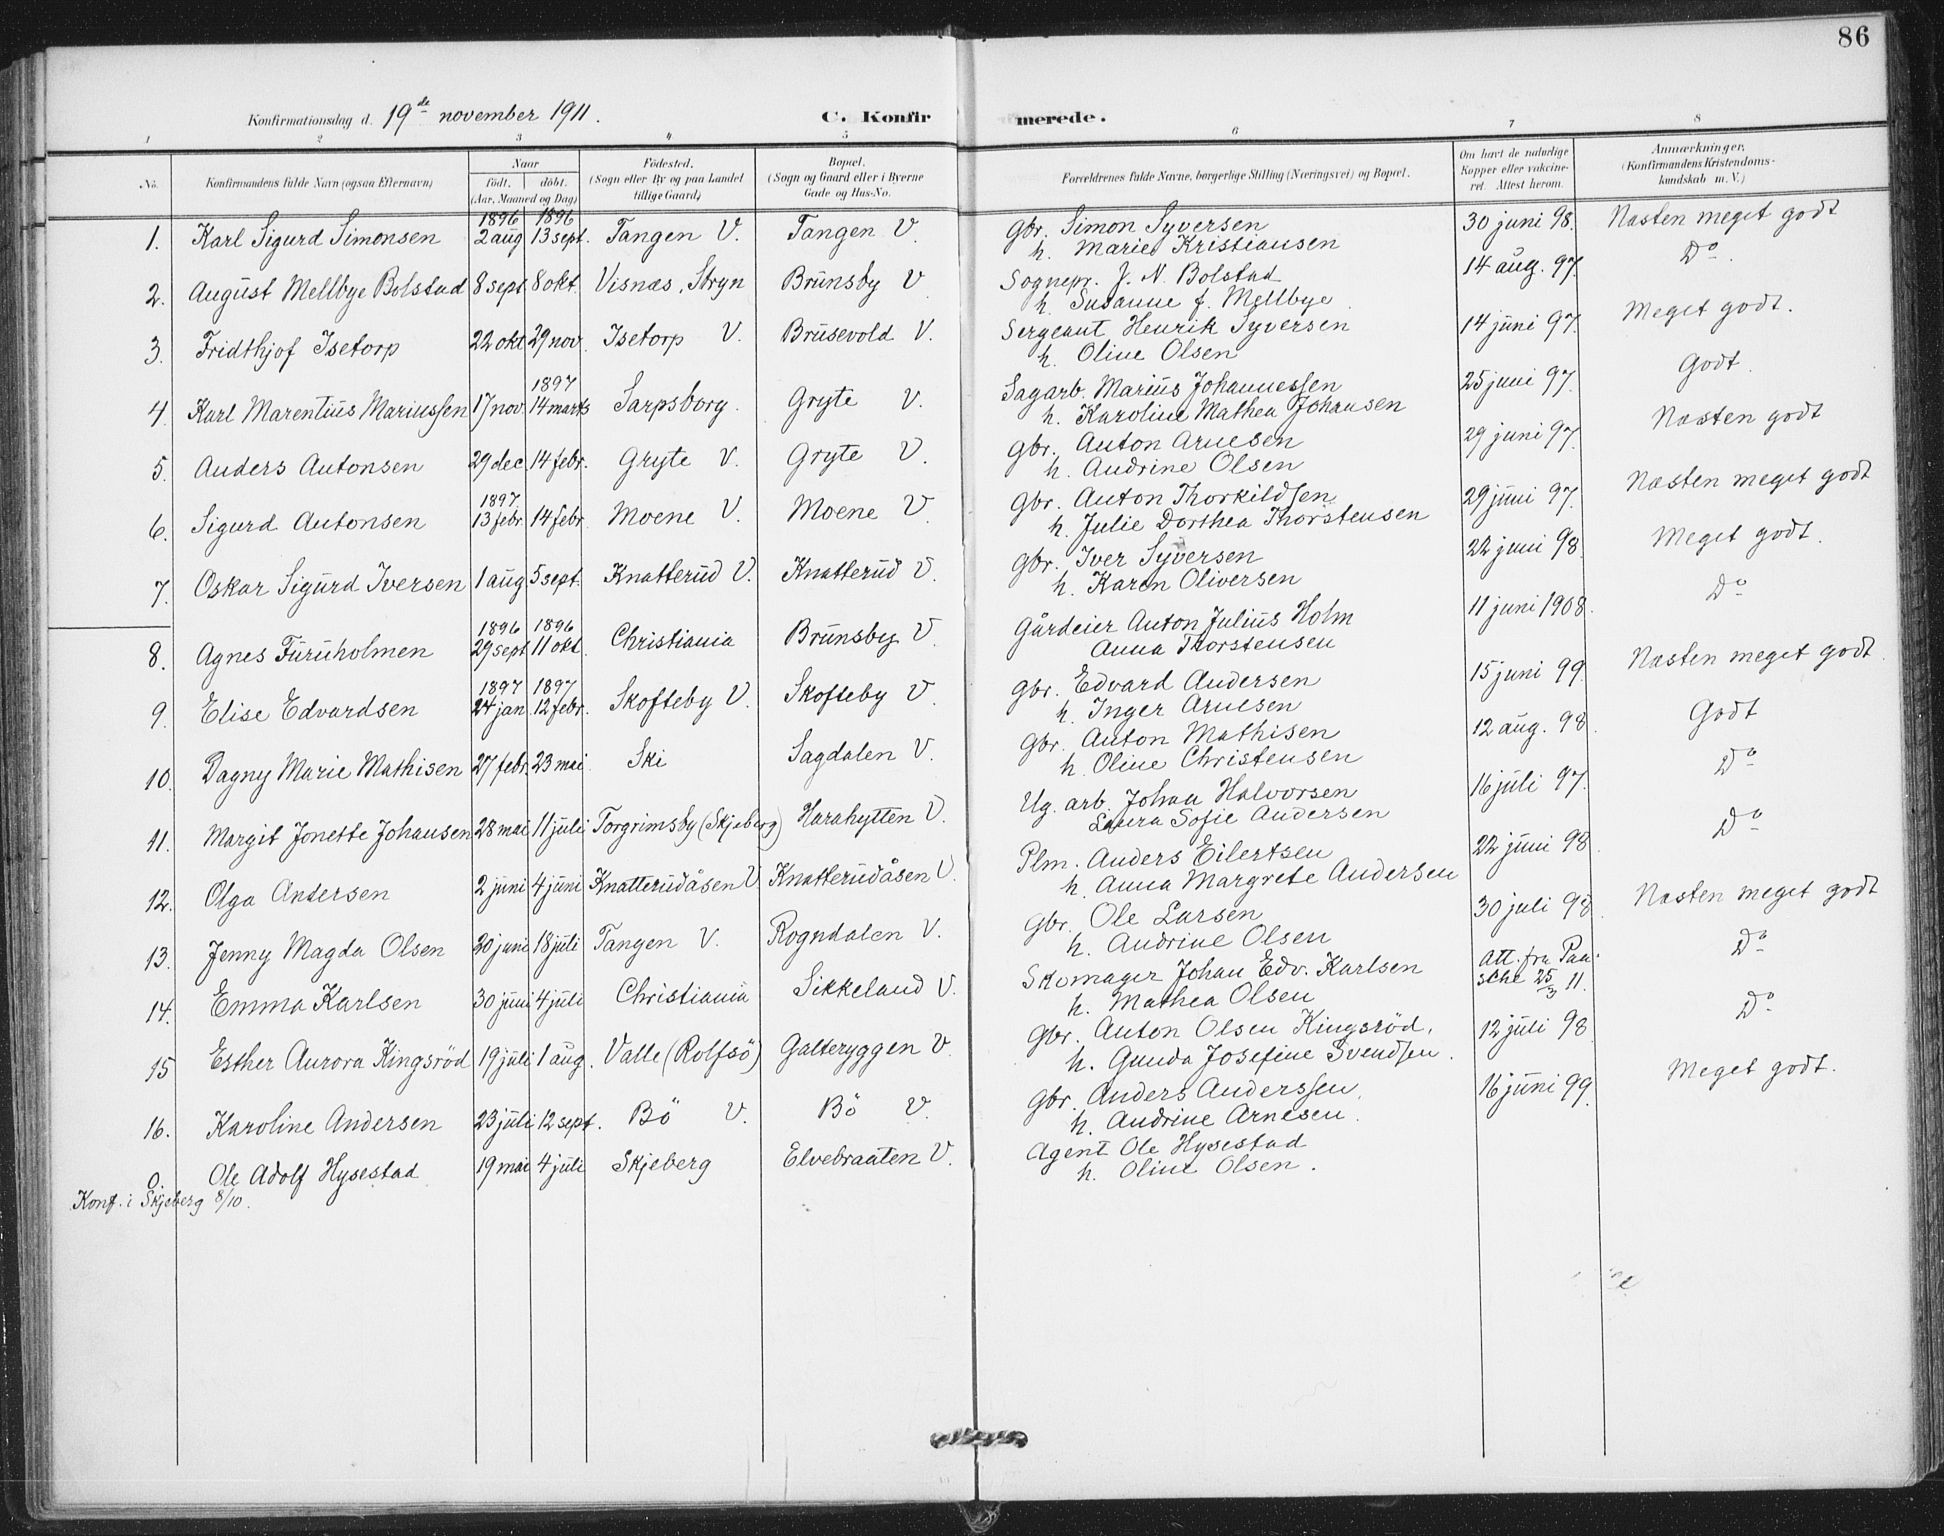 86
Konfirmationsdag d. 19de november 1911. C. Konfirmerede.
1 2 3 4 5 6 7 8
No. Konfirmandens fulde Navn (ogsaa Efternavn) Naar födt. döbt. (Aar, Maaned og Dag) Födested. (Sogn eller By og paa Landet tillige Gaard) Bopæl. (Sogn og Gaard eller i Byerne Gade og Hus-No. Forældrenes fulde Navne, borgerlige Stilling (Næringsvei) og Bopæl. Om havt de naturlige Kopper eller vakcineret. Attest herom. Anmærkninger. (Konfirmandens Kristendomskundskab m. V.)
1. Karl Sigurd Simonsen 1896 2 aug 1896 13 sept. Tangen V. Tangen V. Gbr. Simon Syversen 30 juni 98. Næsten meget godt
h. Marie Kristiansen
2. August Mellbye Bolstad 8 sept 8 okt. Visnæs, Stryn Brünsby V. Sognepr. J. N. Bolstad 14 aug. 97. Do.
h. Susanne f. Mellbye.
3. Fridthjof Isetorp 22 okt 29 nov. Isetorp V. Brüsevold V. Sergeant Henrik Syversen 14 juni 97. Meget godt.
h. Oline Olsen
4. Karl Marentius Mariussen 17 nov. 1897 14 marts Sarpsborg. Gryte V. Sagarb. Marius Johannessen 25 juni 97. Godt.
h. Karoline Mathea Johansen
5. Anders Antonsen 29 dec. 14 febr. Gryte V. Gryte V. Gbr. Anton Arnesen 29 juni 97. Næsten godt
h. Andrine Olsen
6. Sigurd Antonsen 1897 13 febr. 14 febr. Moene V. Moene V. Gbr. Anton Thorkildsen 29 juni 97. Næsten meget godt
h. Julie Dorthea Thorstensen
7. Oskar Sigurd Iversen 1 aug 5 sept. Knatterud V. Knatterud V. Gbr. Iver Syversen 22 juni 98. Meget godt.
h. Karen Oliversen
8. Agnes Furuholmen 1896 29 sept 1896 11 okt. Christiania Brünsby V. Gårdeier Anton Julius Holm 11 juni 1908. Do
Anna Thorstensen
9. Elise Edvardsen 1897 24 jan 1897 12 febr. Skofteby V. Skofteby V. Gbr. Edvard Andersen 15 juni 99. Næsten meget godt.
h. Inger Arnesen
10. Dagny Marie Mathisen 27 febr. 23 mai Ski Sagdalen V. Gbr. Anton Mathisen 12 aug. 98. Godt
h. Oline Christensen
11. Margit Jonette Johansen 28 mai 11 juli Torgrimsby (Skjeberg) Harahytten V. Ug. arb. Johan Halvorsen 16 juli 97. Do
Laura Sofie Andersen
12. Olga Andersen 2 juni 4 juni Knatterudåsen V. Knatterudåsen V. Plm. Anders Eilertsen 22 juni 98. Do
h. Anna Margrete Andersen
13. Jenny Magda Olsen 20 juni 18 juli Tangen V. Rogndalen V. Gbr. Ole Larsen 30 juli 98. Næsten meget godt
h. Andrine Olsen
14. Emma Karlsen 30 juni 4 juli Christiania Sikkeland V. Skomager Johan Edv. Karlsen Att. fra Paasche 25/3 11. Do
h. Mathea Olsen
15 Esther Aurora Kingsröd 19 juli 1 aug. Valle (Rolfsö) Galteryggen V. Gbr. Anton Olsen Kingsröd. 12 juli 98. Do
h. Gunda Josefine Svendsen.
16. Karoline Andersen 23 juli 12 sept. Bö V. Bö V. Gbr. Anders Anderssen. 16 juni 99. Meget godt.
h. Andrine Arnesen.
0. Ole Adolf Hysestad 19 mai 4 juli Skjeberg Elvebraaten V. Agent Ole Hysestad
h. Oline Olsen.
Konf. i Skjeberg 8/10.